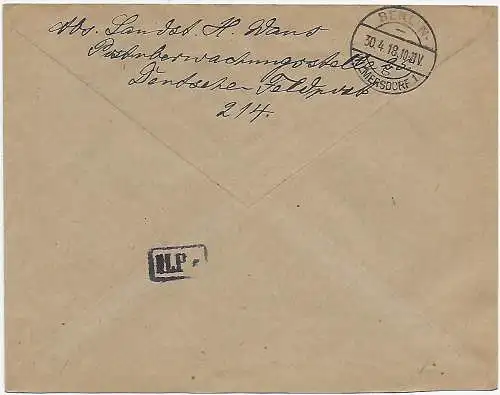 Abs. Landst. H. Wans
Postüberwachungsstelle
Deutsche Feldpost
214.
BERLIN
30.4.18.10-11V.
WILMERSDORF 1